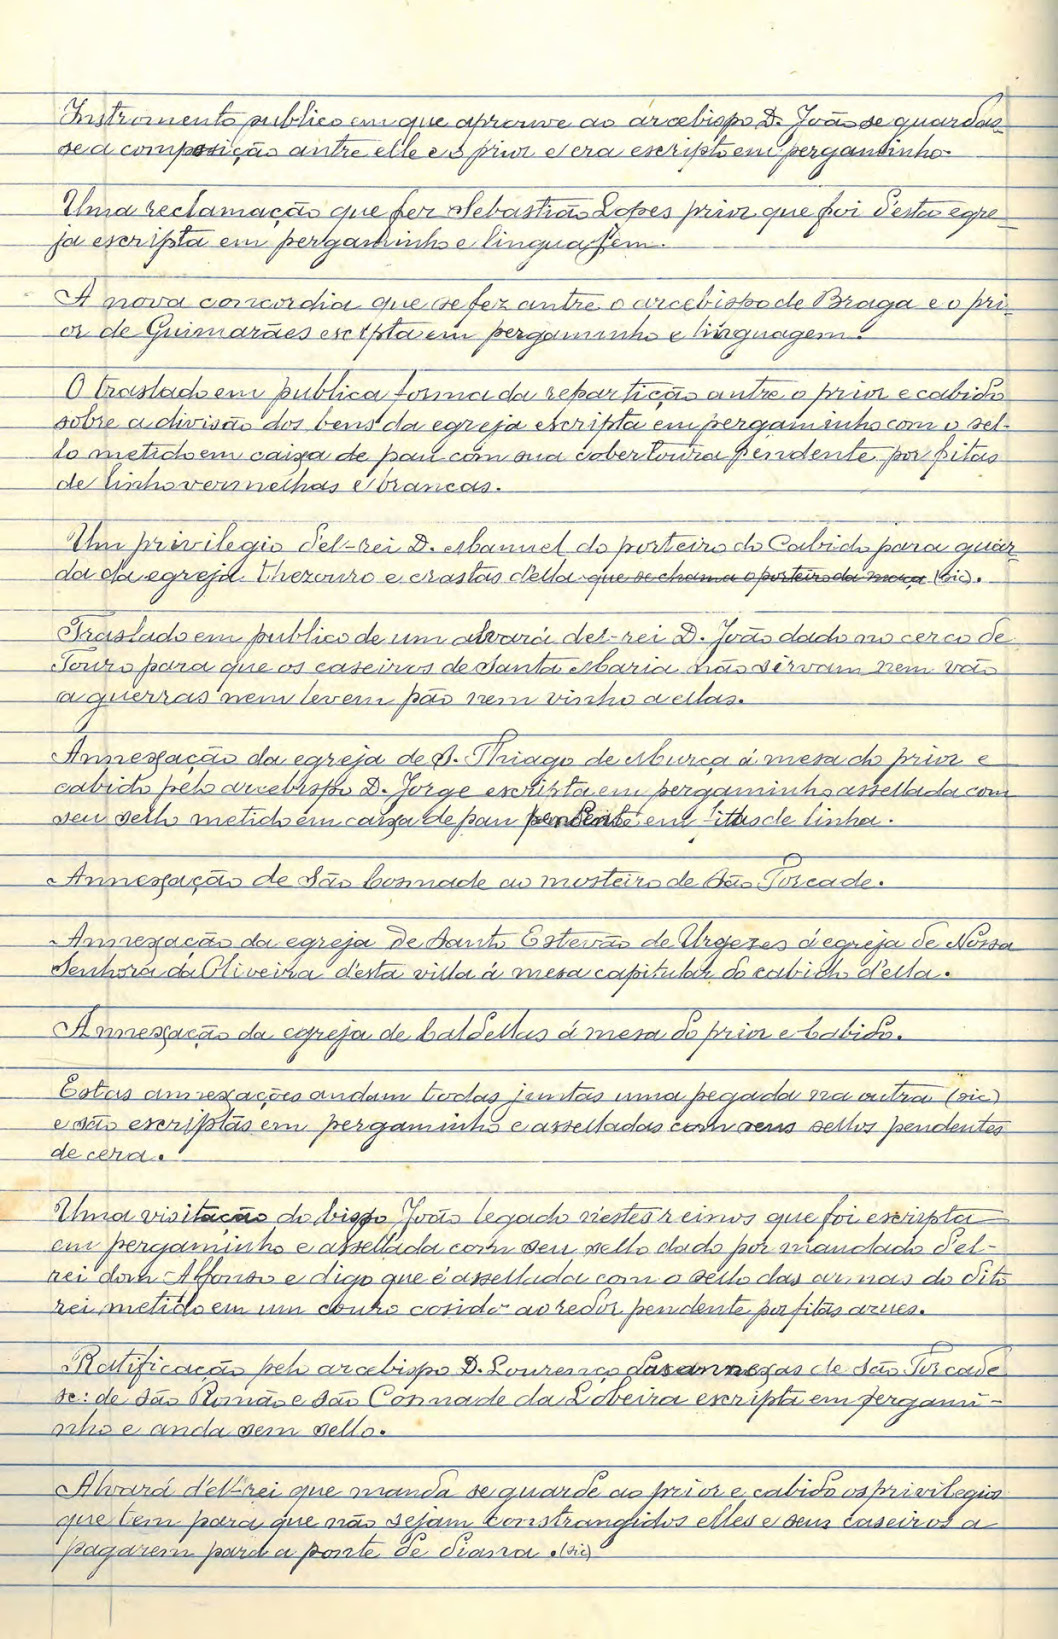 Instromento publico em que aprouve ao arcebispo D. João se guardas-
se a composição antre elle e o prior e era escripto em pergaminho.
Uma reclamação que fez Sebastião Lopes prior que foi d'esta egre-
ja escripta em pergaminho e linguagem.
A nova concordia que se fez antre o arcebispo de Braga e o pri-
or de Guimarães escripta em pergaminho e linguagem.
O traslado em publica forma da repartição antre o prior e cabido
sobre a divisão dos bens da egreja escripta em pergaminho com o sel-
lo metido em caixa de pau com sua cobertoura pendente por fitas
de linho vermelhas e brancas.
Um privilegio del-rei D. Manuel do porteiro do Cabido para guar-
da da egreja thezouro e crastas d'ella que se chama o porteiro da maça (sic).
Traslado em publico de um alvará del-rei D. João dado no cerco de
Touro para que os caseiros de Santa Maria não sirvam nem vão
a guerras nem levem pão nem vinho a ellas.
Annexação da egreja de S. Thiago de Murça á mesa do prior e
cabido pelo arcebispo D. Jorge escripta em pergaminho assellada com
seu sello metido em caixa de pau pendente em fitas de linha.
Annexação de São Cosmade ao mosteiro de São Torcade.
Annexação da egreja de Santo Estevão de Urgezes á egreja de Nossa
Senhora da Oliveira d'esta villa á mesa capitular do cabido d'ella.
Annexação da egreja de Caldellas á mesa do prior e Cabido.
Estas annexações andam todas juntas uma pegada na outra (sic)
e são escriptas em pergaminho e asselladas com seus sellos pendentes
de cera.
Uma visitação do bispo João legado n'estes reinos que foi escripta
em pergaminho e assellada com seu sello dado por mandado del-
rei dom Affonso e digo que é assellada com o sello das armas do dito
rei metido em um couro cosido ao redor pendente por fitas azues.
Ratificação pelo arcebispo D. Lourenço das annexas de São Torcade
sc: de São Romão e São Cosmade da Lobeira escripta em pergami-
nho e anda sem sello.
Alvará d'el-rei que manda se guarde ao prior e cabido os privilegios
que tem para que não sejam constrangidos elles e seus caseiros a
pagarem para a ponte de (sic)